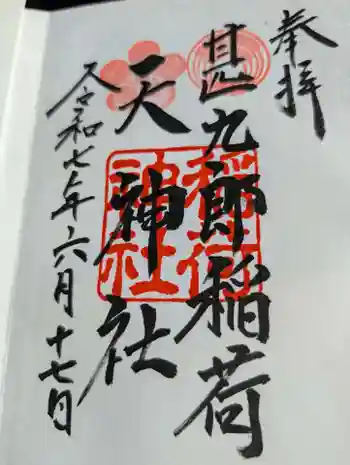 奉拝
甚九郎稲荷
天神社
令和七年六月十七日
稲荷
神社